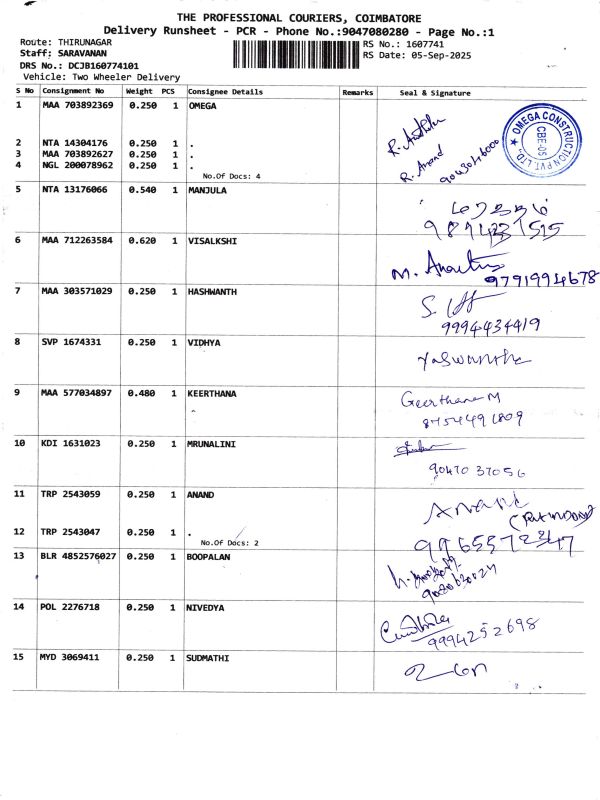 THE PROFESSIONAL COURIERS, COIMBATORE
Delivery Runsheet - PCR - Phone No.:9047080280 - Page No.:1
Route: THIRUNAGAR
RS No.: 1607741
Staff: SARAVANAN
RS Date: 05-Sep-2025
DRS No.: DCJB160774101
Vehicle: Two Wheeler Delivery
S No Consignment No Weight PCS Consignee Details Remarks Seal & Signature
1 MAA 703892369 0.250 1 OMEGA
2 NTA 14304176 0.250 1 .
3 MAA 703892627 0.250 1 .
4 NGL 200078962 0.250 1 .
No.Of Docs: 4
R. Anand
OMEGA CONSTRUCTION PVT. LTD.
CBE-05
5 NTA 13176066 0.540 1 MANJULA
6 MAA 712263584 0.620 1 VISALKSHI
9791994678
7 MAA 303571029 0.250 1 HASHWANTH
9994434419
8 SVP 1674331 0.250 1 VIDHYA
Yaswantha
9 MAA 577034897 0.480 1 KEERTHANA
Geerthana M
8754491809
10 KDI 1631023 0.250 1 MRUNALINI
9047037056
11 TRP 2543059 0.250 1 ANAND
Anand
12 TRP 2543047 0.250 1 .
No.Of Docs: 2
13 BLR 4852576027 0.250 1 BOOPALAN
14 POL 2276718 0.250 1 NIVEDYA
9994252698
15 MYD 3069411 0.250 1 SUDMATHI